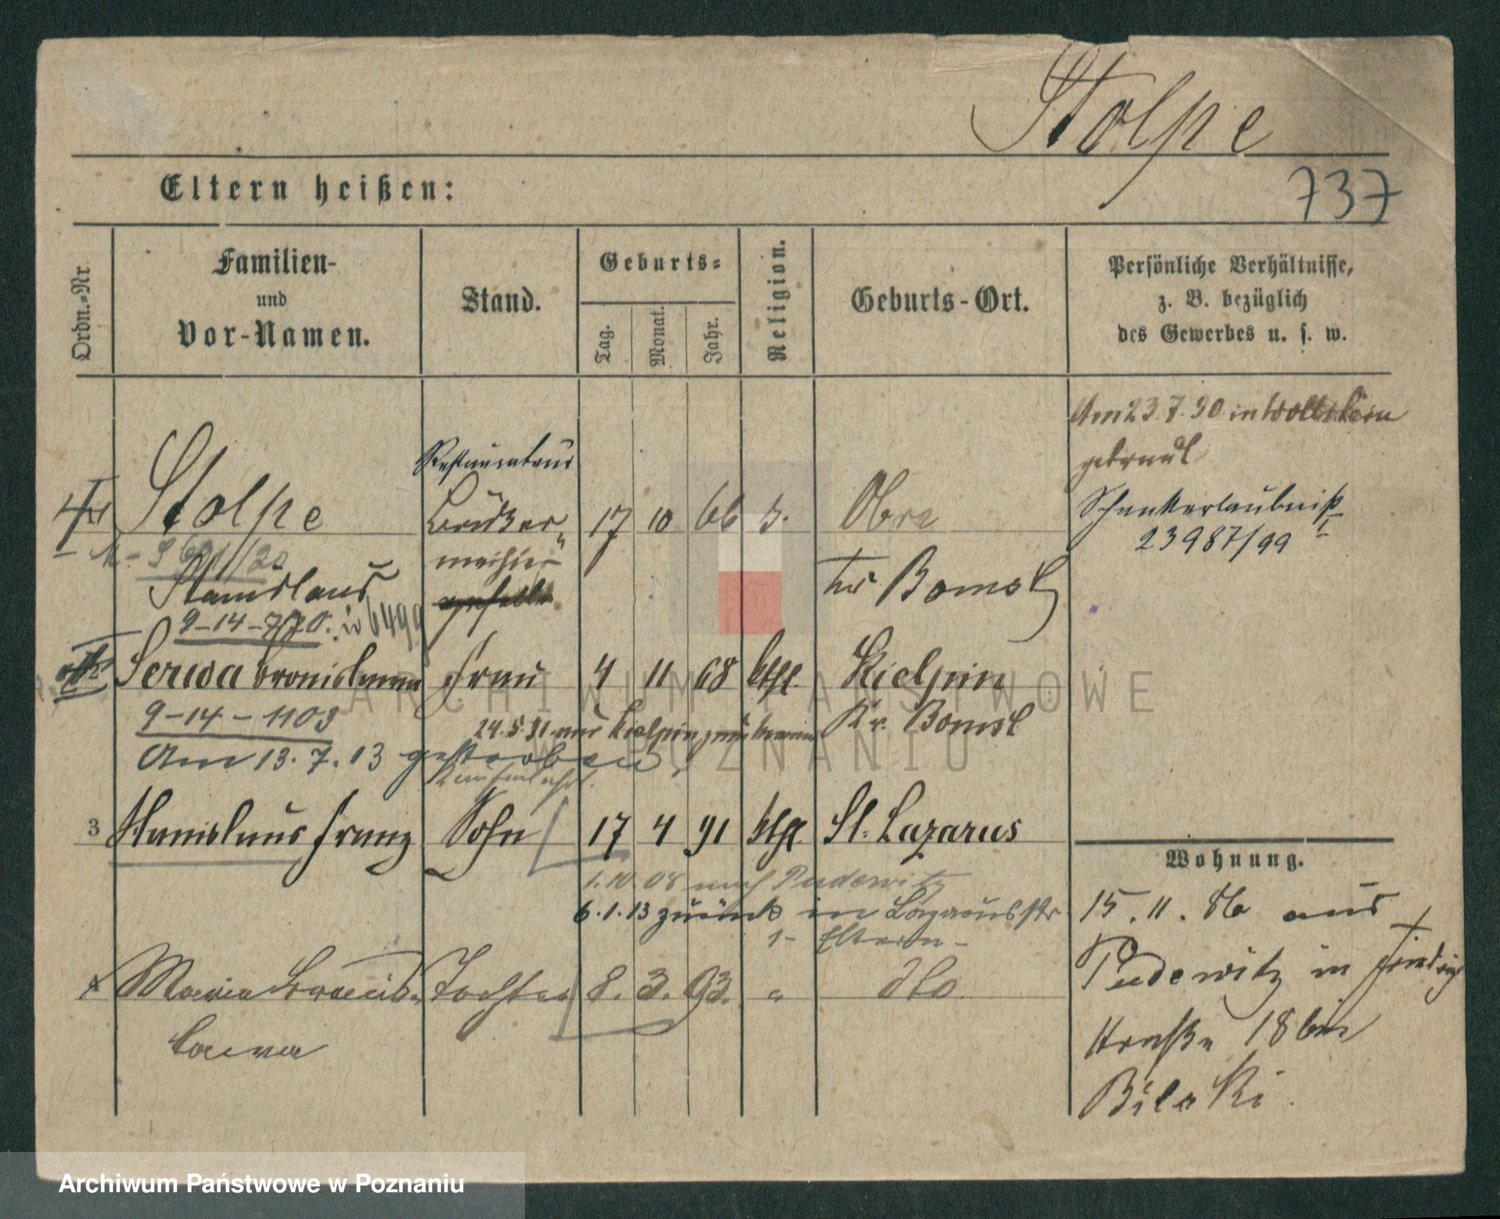 Stolpe
737
Eltern heißen:
Ordn.-Nr.
Familien-
und
Vor-Namen.
Stand.
Geburts-
Tag.
Monat.
Jahr.
Religion.
Geburts-Ort.
Persönliche Verhältnisse,
z. B. bezüglich
des Gewerbes u. s. w.
Am 23.7.90 in Wollstein
getraut
Restaurateur
Stolpe
17 10 66
Obra
Schankerlaubniß
23987/99
Stanislaus
Kr Bomst
9-14-770.
Serwa Bronislawa Frau 4 11 68 kthl. Kielpin
9-14-1103
24.5.91 aus Kielpin
Kr. Bomst
Am 13.7.13 gestorben.
3 Stanislaus Franz Sohn 17 4 91 kthl St. Lazarus
Wohnung.
1.10.08 nach Pudewitz
6.1.13 zurück in Lazarusstr
1- Eltern-
15.11.86 aus
Pudewitz in
4 Maria Bronis- Tochter 8. 3. 93. " dto.
lawa
straße 18 bei
ARCHIWUM PAŃSTWOWE
W POZNANIU
Archiwum Państwowe w Poznaniu